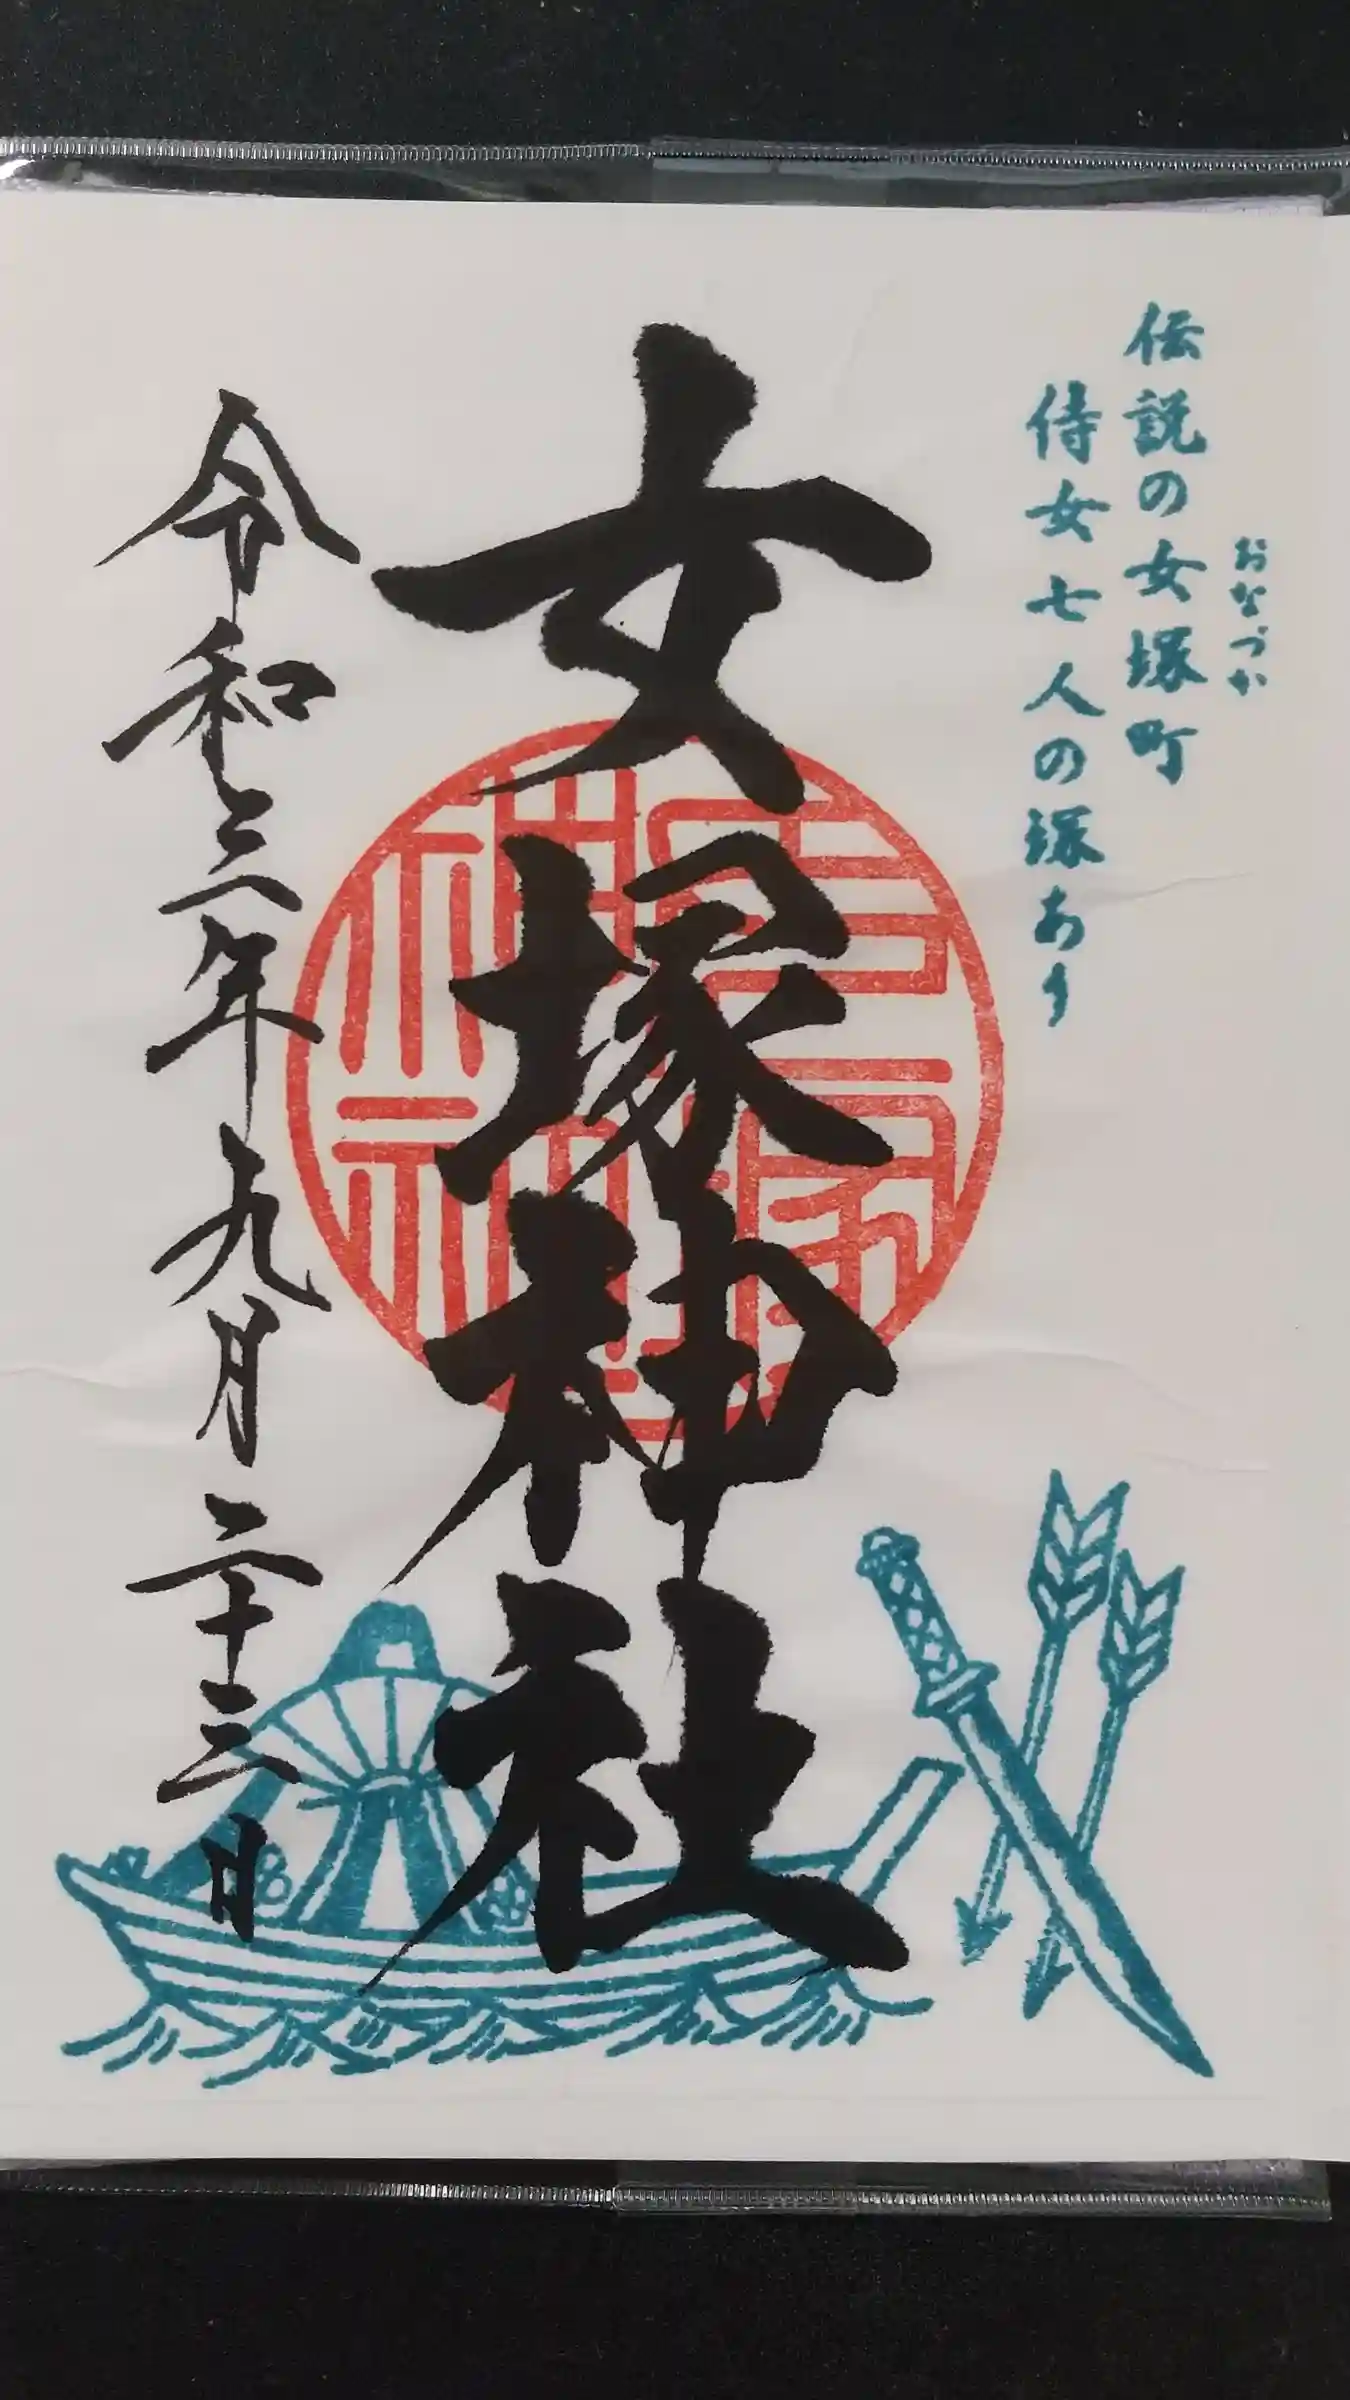 おなづか
伝説の女塚町
侍女七人の塚あり
女塚神社
令和三年九月二十三日